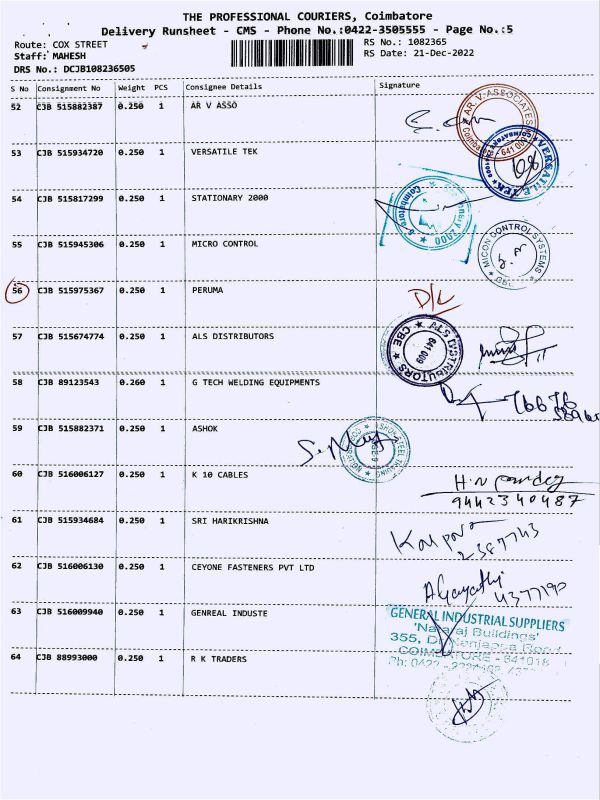 THE PROFESSIONAL COURIERS, Coimbatore
Delivery Runsheet - CMS - Phone No.:0422-3505555 - Page No.:5
Route: COX STREET RS No.: 1082365
Staff: MAHESH RS Date: 21-Dec-2022
DRS No.: DCJB108236505
S No Consignment No Weight PCS Consignee Details Signature
52 CJB 515882387 0.250 1 AR V ASSO
AR V. ASSOCIATES
641 009
53 CJB 515934720 0.250 1 VERSATILE TEK
VERSATILE TEK
54 CJB 515817299 0.250 1 STATIONARY 2000
Coimbatore 2000
55 CJB 515945306 0.250 1 MICRO CONTROL
MICON CONTROL SYSTEMS
56 CJB 515975367 0.250 1 PERUMA
D/L
57 CJB 515674774 0.250 1 ALS DISTRIBUTORS
ALS DISTRIBUTORS CBE
641 009
58 CJB 89123543 0.260 1 G TECH WELDING EQUIPMENTS
76676
59 CJB 515882371 0.250 1 ASHOK
60 CJB 516006127 0.250 1 K 10 CABLES
H.N pandey
9442340487
61 CJB 515934684 0.250 1 SRI HARIKRISHNA
Kalpana
2387743
62 CJB 516006130 0.250 1 CEYONE FASTENERS PVT LTD
AGayathri
4377190
63 CJB 516009940 0.250 1 GENREAL INDUSTE
GENERAL INDUSTRIAL SUPPLIERS
'Nataraj Buildings'
355, Dr. Nanjappa Road
COIMBATORE - 641018
64 CJB 88993000 0.250 1 R K TRADERS